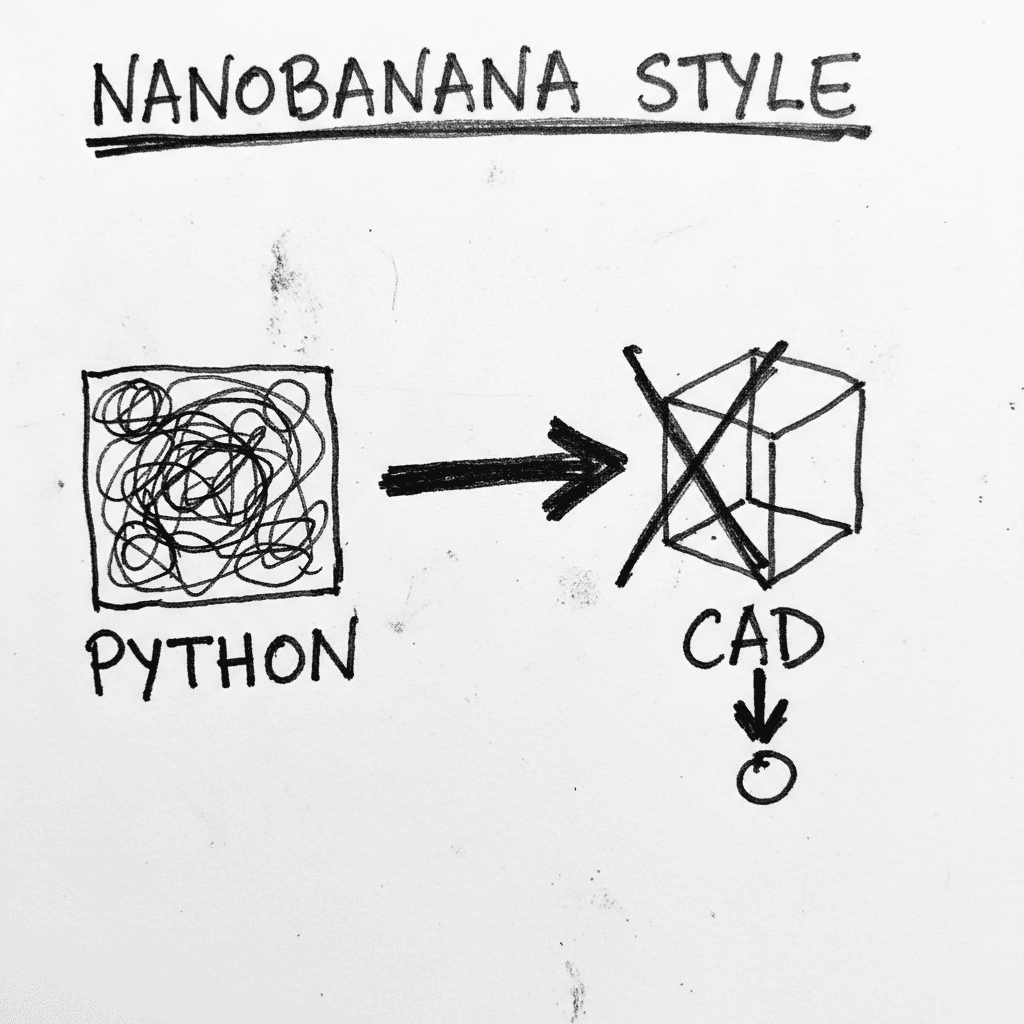 NANOBANANA STYLE
PYTHON
CAD